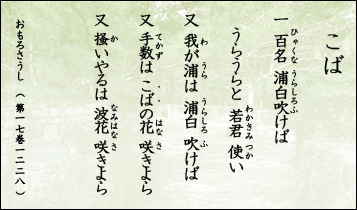 こば
一 百名 浦白吹けば
ひゃくな うらしろふ
うらうらと 若君 使い
わかきみ つか
又 我が浦は 浦白 吹けば
わ うら うらしろ ふ
又 手数は こばの花 咲きよら
てかず はな さ
又 掻いやるは 波花 咲きよら
か なみはな さ
おもろさうし （ 第一七巻一二二八 ）